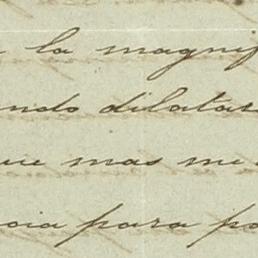 a la magnif
ndo dilatar
que mas me
cia para po